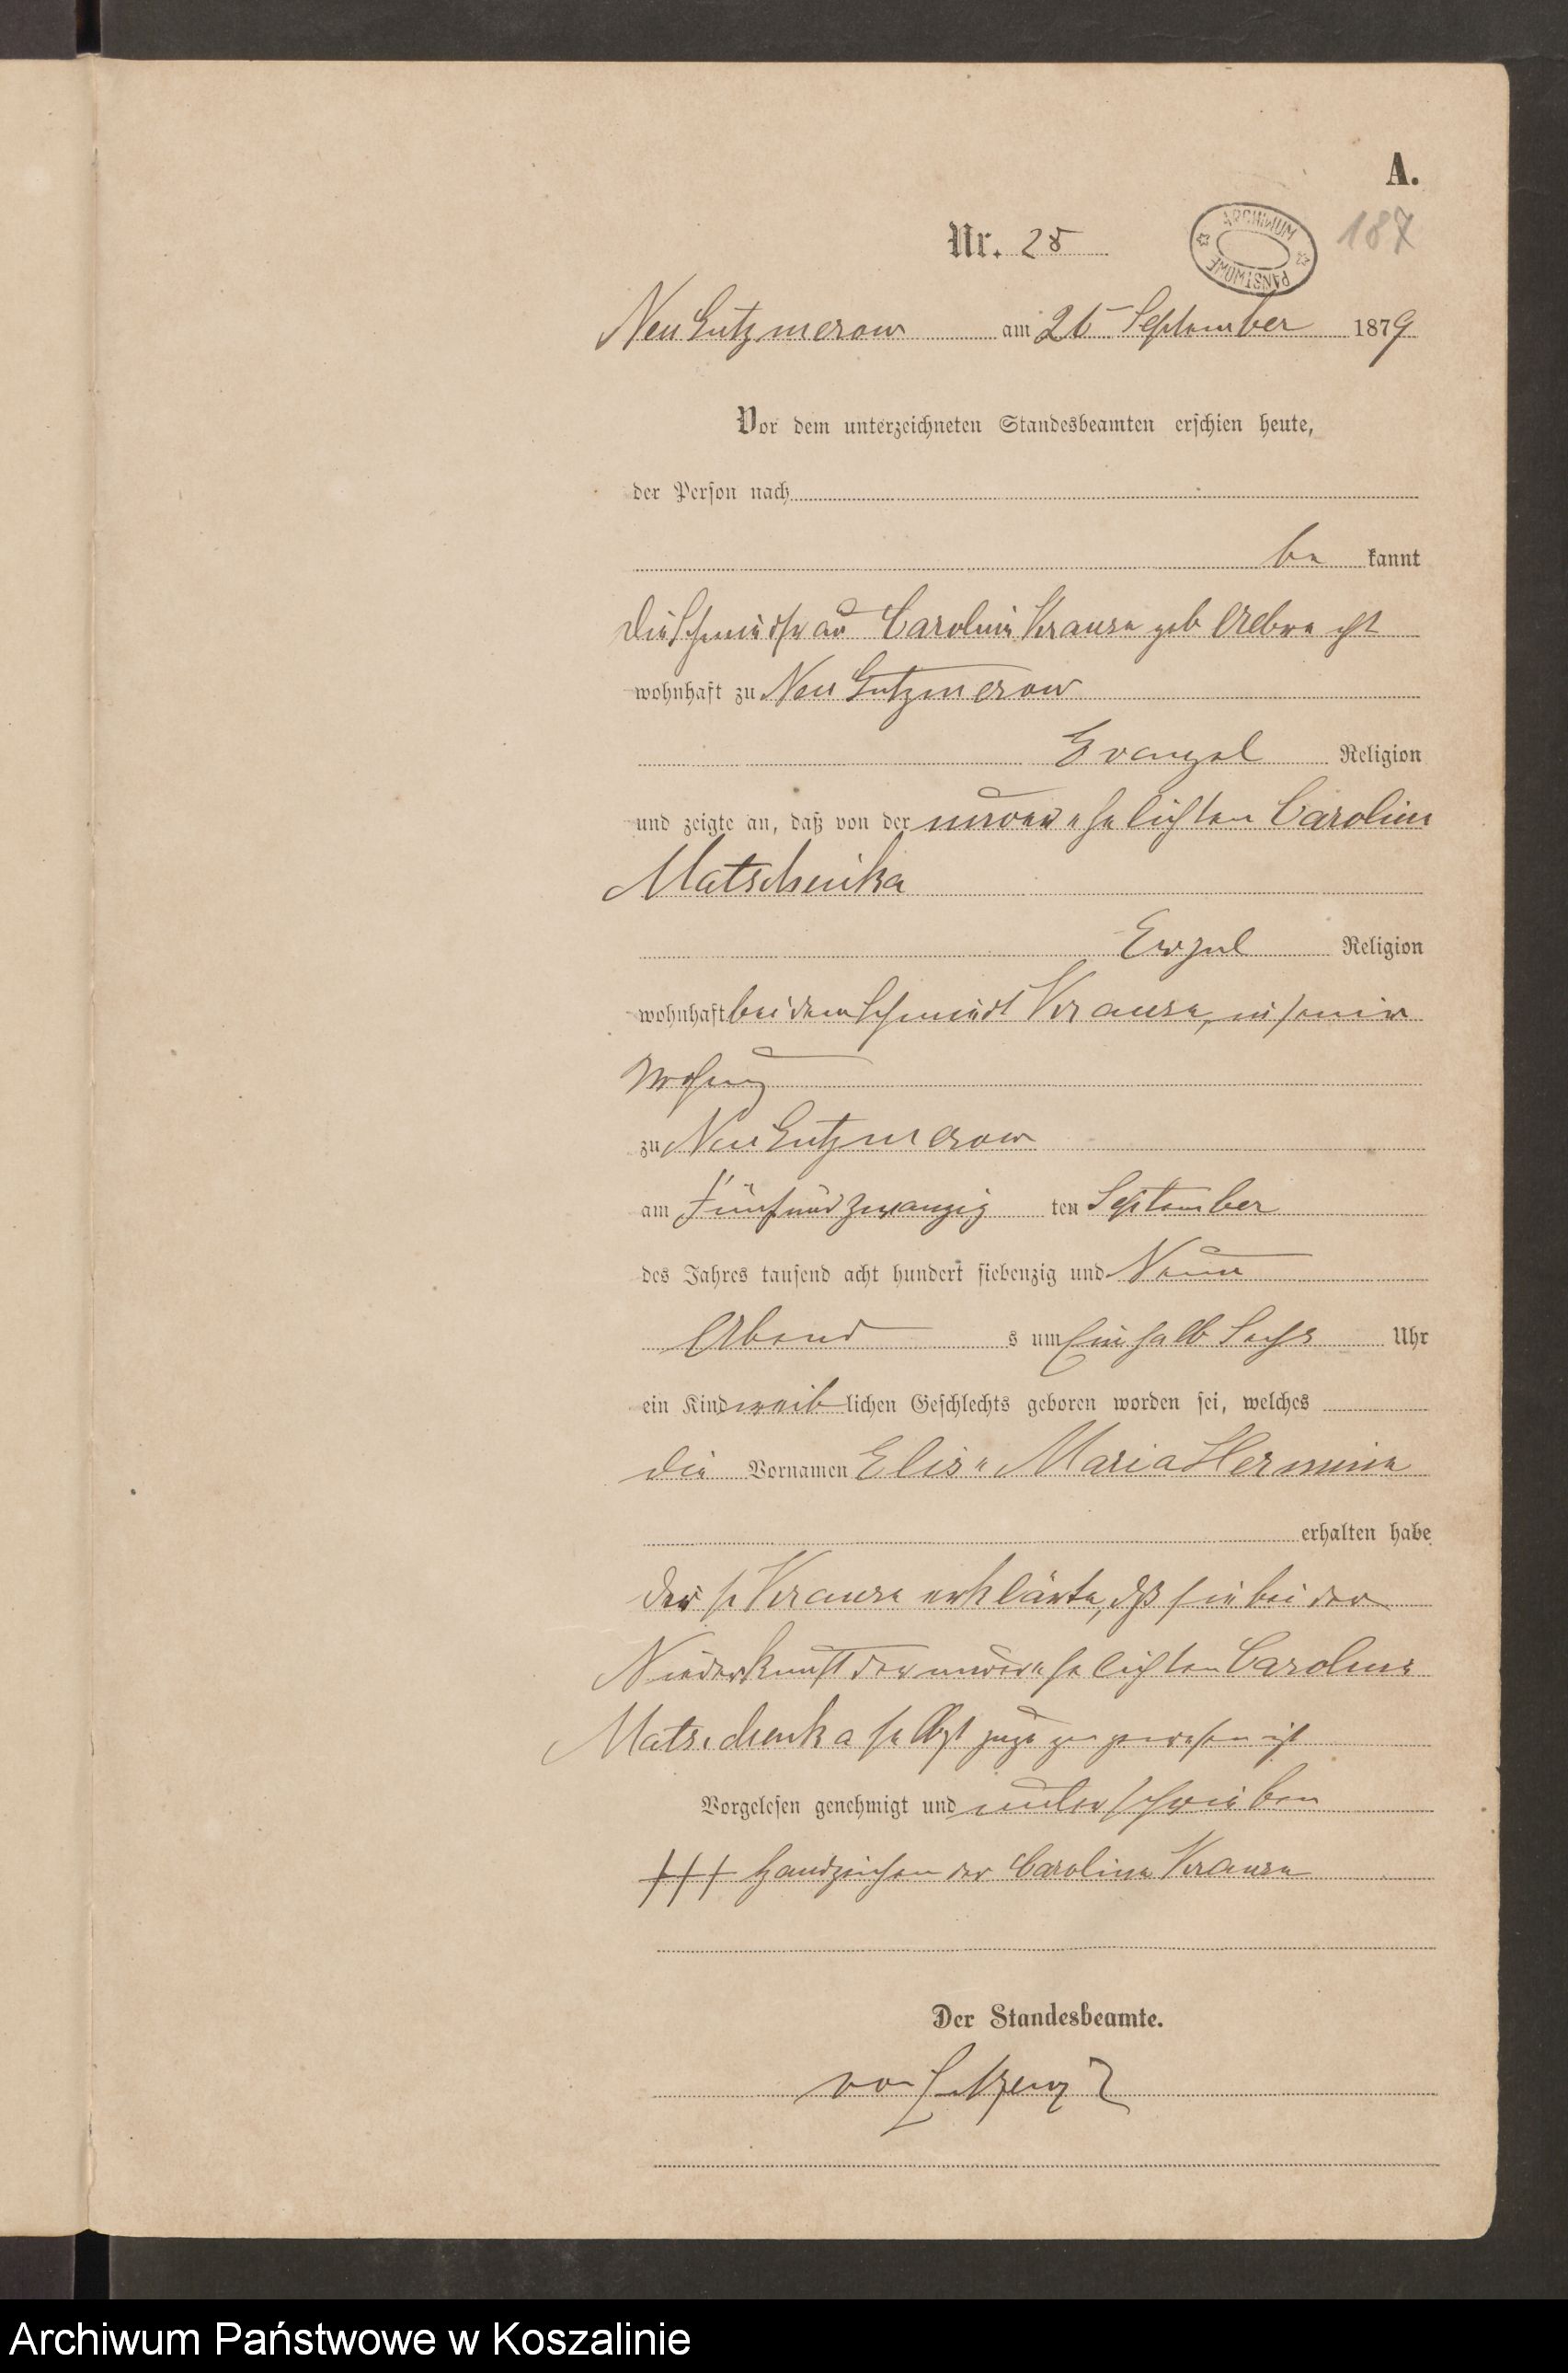 A.
187
ARCHIWUM PAŃSTWOWE
Nr. 28
Neu Gutzmerow am 26 September 1879
Vor dem unterzeichneten Standesbeamten erschien heute,
der Person nach
be kannt
die Schmiedefrau Caroline Krause geb Albrecht
wohnhaft zu Neu Gutzmerow
Evangel Religion
und zeigte an, daß von der unverehelichten Caroline
Matschenka
Evgel Religion
wohnhaft bei dem Schmidt Krause, in seiner
Wohnung
zu Neu Gutzmerow
am Fünfundzwanzig ten September
des Jahres tausend acht hundert siebenzig und Neun
Abend s um Einhalb Sechs Uhr
ein Kind weib lichen Geschlechts geboren worden sei, welches
die Vornamen Elise Maria Hermine
erhalten habe
Krause erklärte, daß sie bei der
Niederkunft der unverehelichten Caroline
Matschenka selbst zugegen gewesen ist
Vorgelesen genehmigt und unterschrieben
+++ Handzeichen der Caroline Krause
Der Standesbeamte.
von
Archiwum Państwowe w Koszalinie